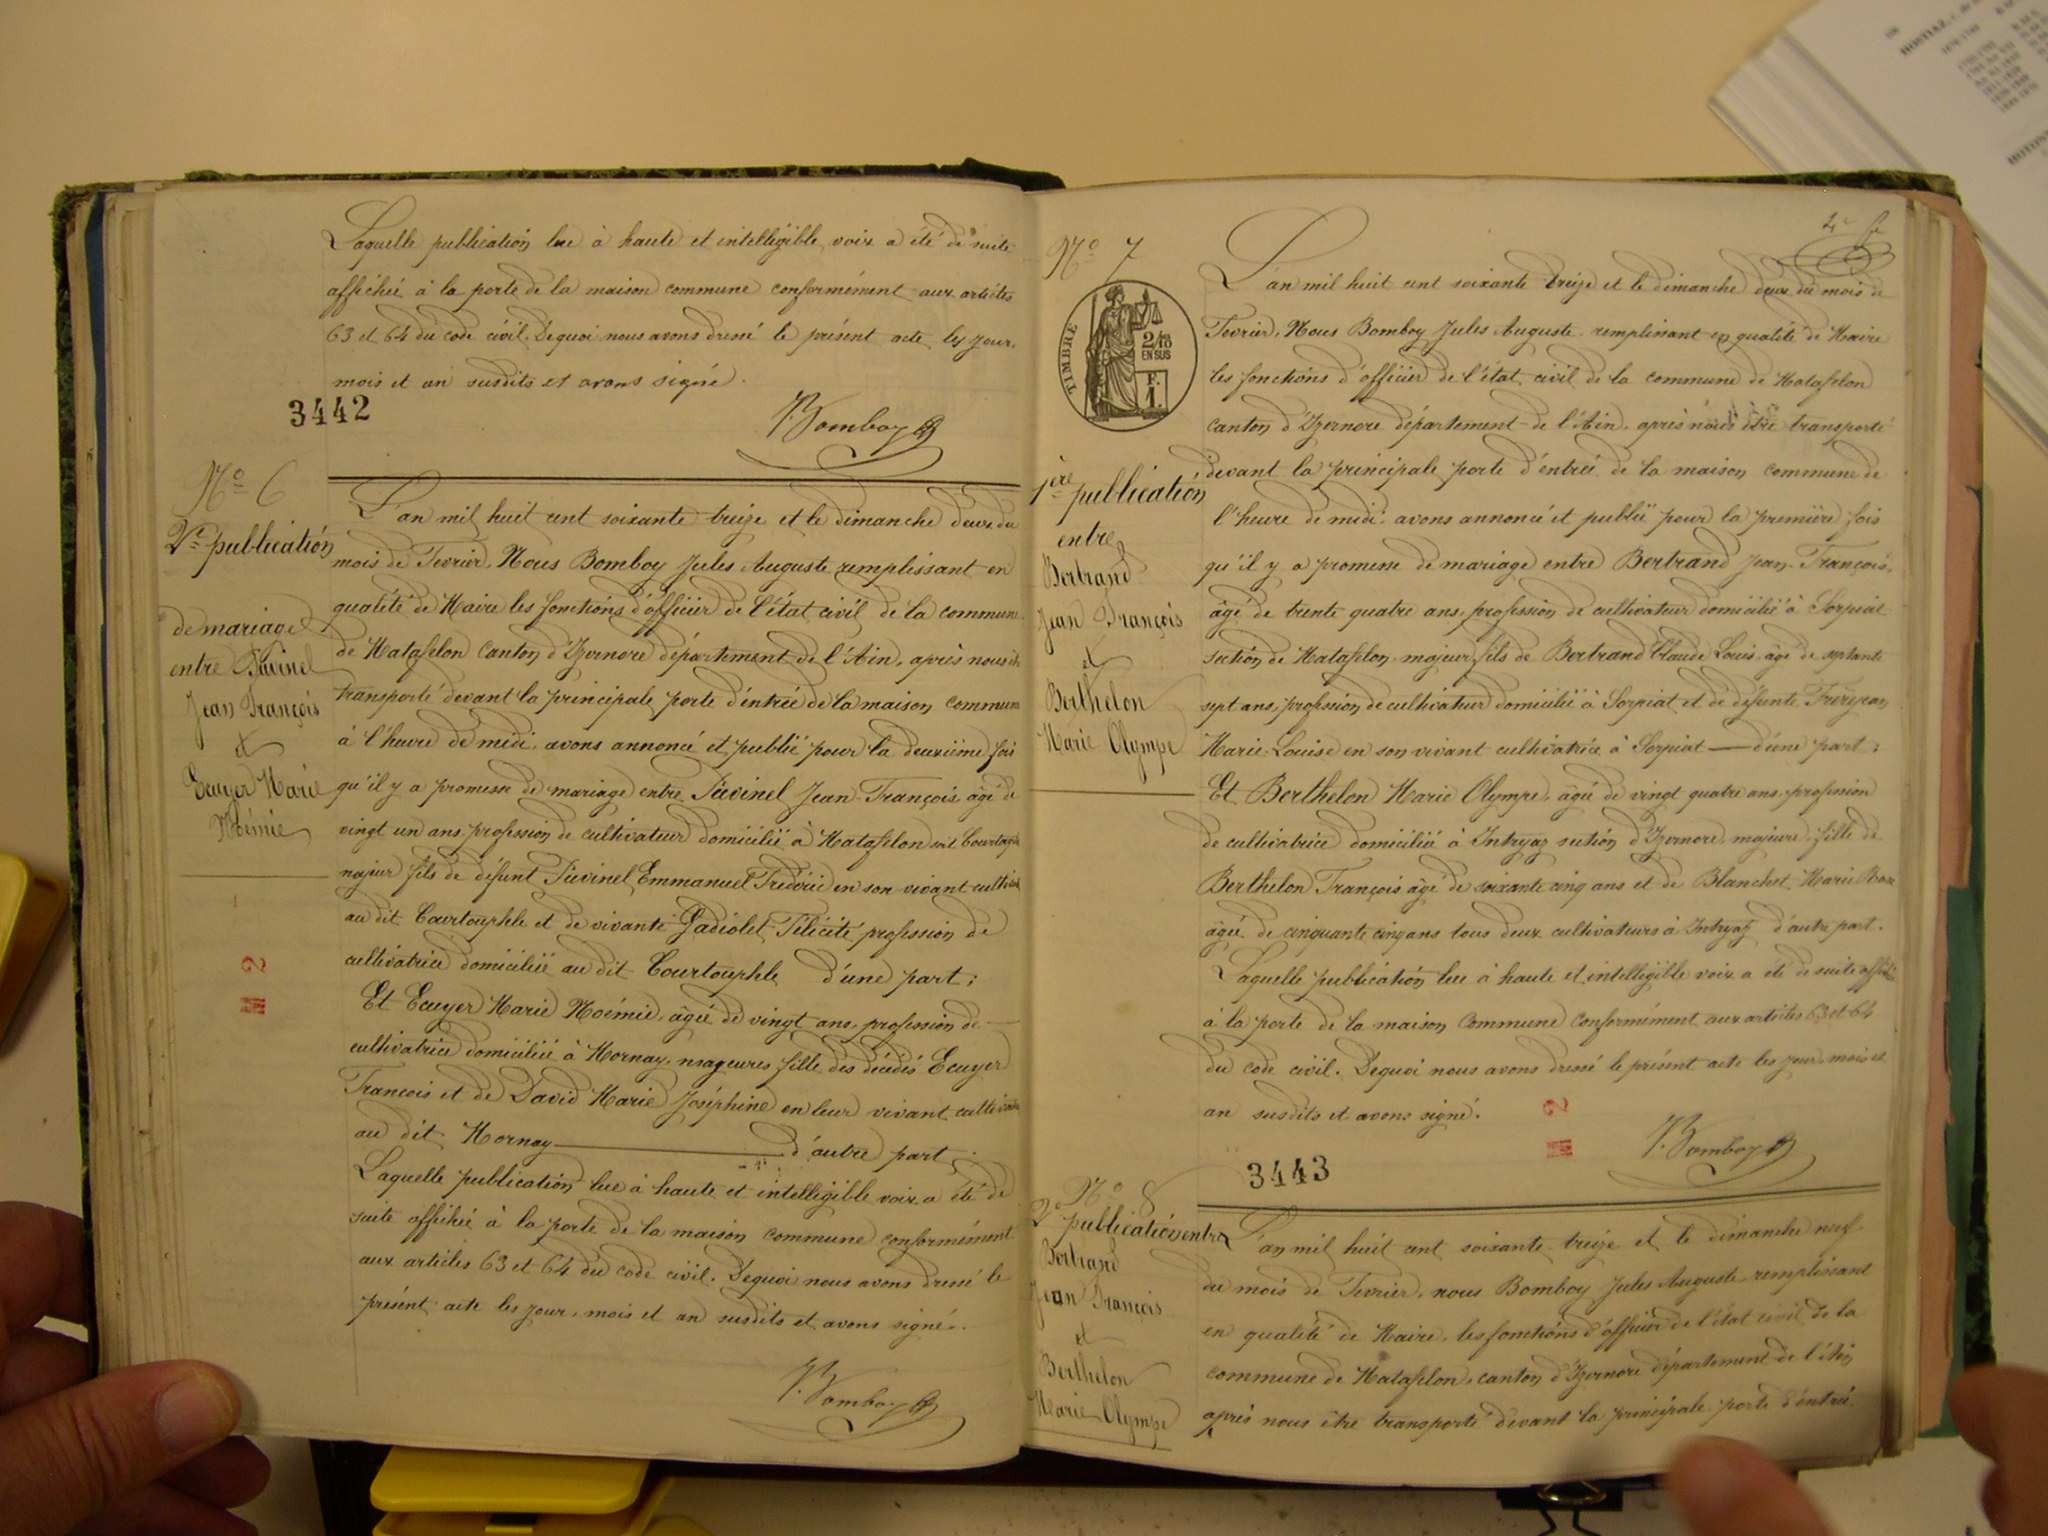 Laquelle publication lue à haute et intelligible voix a été de suite
affichée à la porte de la maison commune conformément aux articles
63 et 64 du code civil. Dequoi nous avons dressé le présent acte les jour,
mois et an susdits et avons signé.
3442
J. Bomboy
No 6
2e publication
de mariage
entre
Jean François
et
Ecuyer Marie
Noémie
L'an mil huit cent soixante treize et le dimanche deux du
mois de Fevrier, Nous Bomboy Jules Auguste remplissant en
qualité de Maire les fonctions d'officier de l'état civil de la commune
de Matafelon canton d'Izernore département de l'Ain, après nous être
transporté devant la principale porte d'entrée de la maison commune
à l'heure de midi, avons annoncé et publié pour la deuxième fois
qu'il y a promesse de mariage entre Jean François âgé de
vingt un ans profession de cultivateur domicilié à Matafelon soit
majeur fils de défunt Emmanuel Frédéric en son vivant
au dit Courtouphle et de vivante Gadiolet Félicité profession de
cultivatrice domiciliée au dit Courtouphle d'une part;
Et Ecuyer Marie Noémie, âgée de vingt ans, profession de
cultivatrice domiciliée à Mornay, mageures fille des décédés Ecuyer
François et de David Marie Joséphine en leur vivant
au dit Mornay d'autre part.
Laquelle publication lue à haute et intelligible voix a été de
suite affichée à la porte de la maison commune conformément
aux articles 63 et 64 du code civil. Dequoi nous avons dressé le
présent acte les jour, mois et an susdits et avons signé.
J. Bomboy
No 7
TIMBRE
2/10
EN SUS
F.
1.
1ère publication
entre
Bertrand
Jean François
et
Berthelon
Marie Olympe
L'an mil huit cent soixante treize et le dimanche deux du mois de
Fevrier, Nous Bomboy Jules Auguste remplissant en qualité de Maire
les fonctions d'officier de l'état civil de la commune de Matafelon
canton d'Izernore département de l'Ain, après nous être transporté
devant la principale porte d'entrée de la maison commune de
l'heure de midi avons annoncé et publié pour la première fois
qu'il y a promesse de mariage entre Bertrand Jean-François,
âgé de trente quatre ans, profession de cultivateur domicilié à Sorpiat
section de Matafelon, majeur fils de Bertrand Claude Louis, âgé de septante
sept ans, profession de cultivateur domicilié à Sorpiat et de défunte
Marie-Louise en son vivant cultivatrice à Sorpiat d'une part;
Et Berthelon Marie Olympe, âgée de vingt quatre ans, profession
de cultivatrice domiciliée à Intryaz section d'Izernore majeure fille de
Berthelon François âgé de soixante cinq ans et de Blanchet Marie Rose
âgée de cinquante cinq ans tous deux cultivateurs à Intryaz d'autre part.
Laquelle publication lue à haute et intelligible voix a été de suite affichée
à la porte de la maison commune conformément aux articles 63 et 64
du code civil. Dequoi nous avons dressé le présent acte les jour, mois et
an susdits et avons signé.
3443
J. Bomboy
No 8
2e publication entre
Bertrand
Jean François
et
Berthelon
Marie Olympe
L'an mil huit cent soixante treize et le dimanche neuf
du mois de Fevrier, nous Bomboy Jules Auguste remplissant
en qualité de Maire, les fonctions d'officier de l'état civil de la
commune de Matafelon, canton d'Izernore département de l'Ain
après nous être transporté devant la principale porte d'entrée